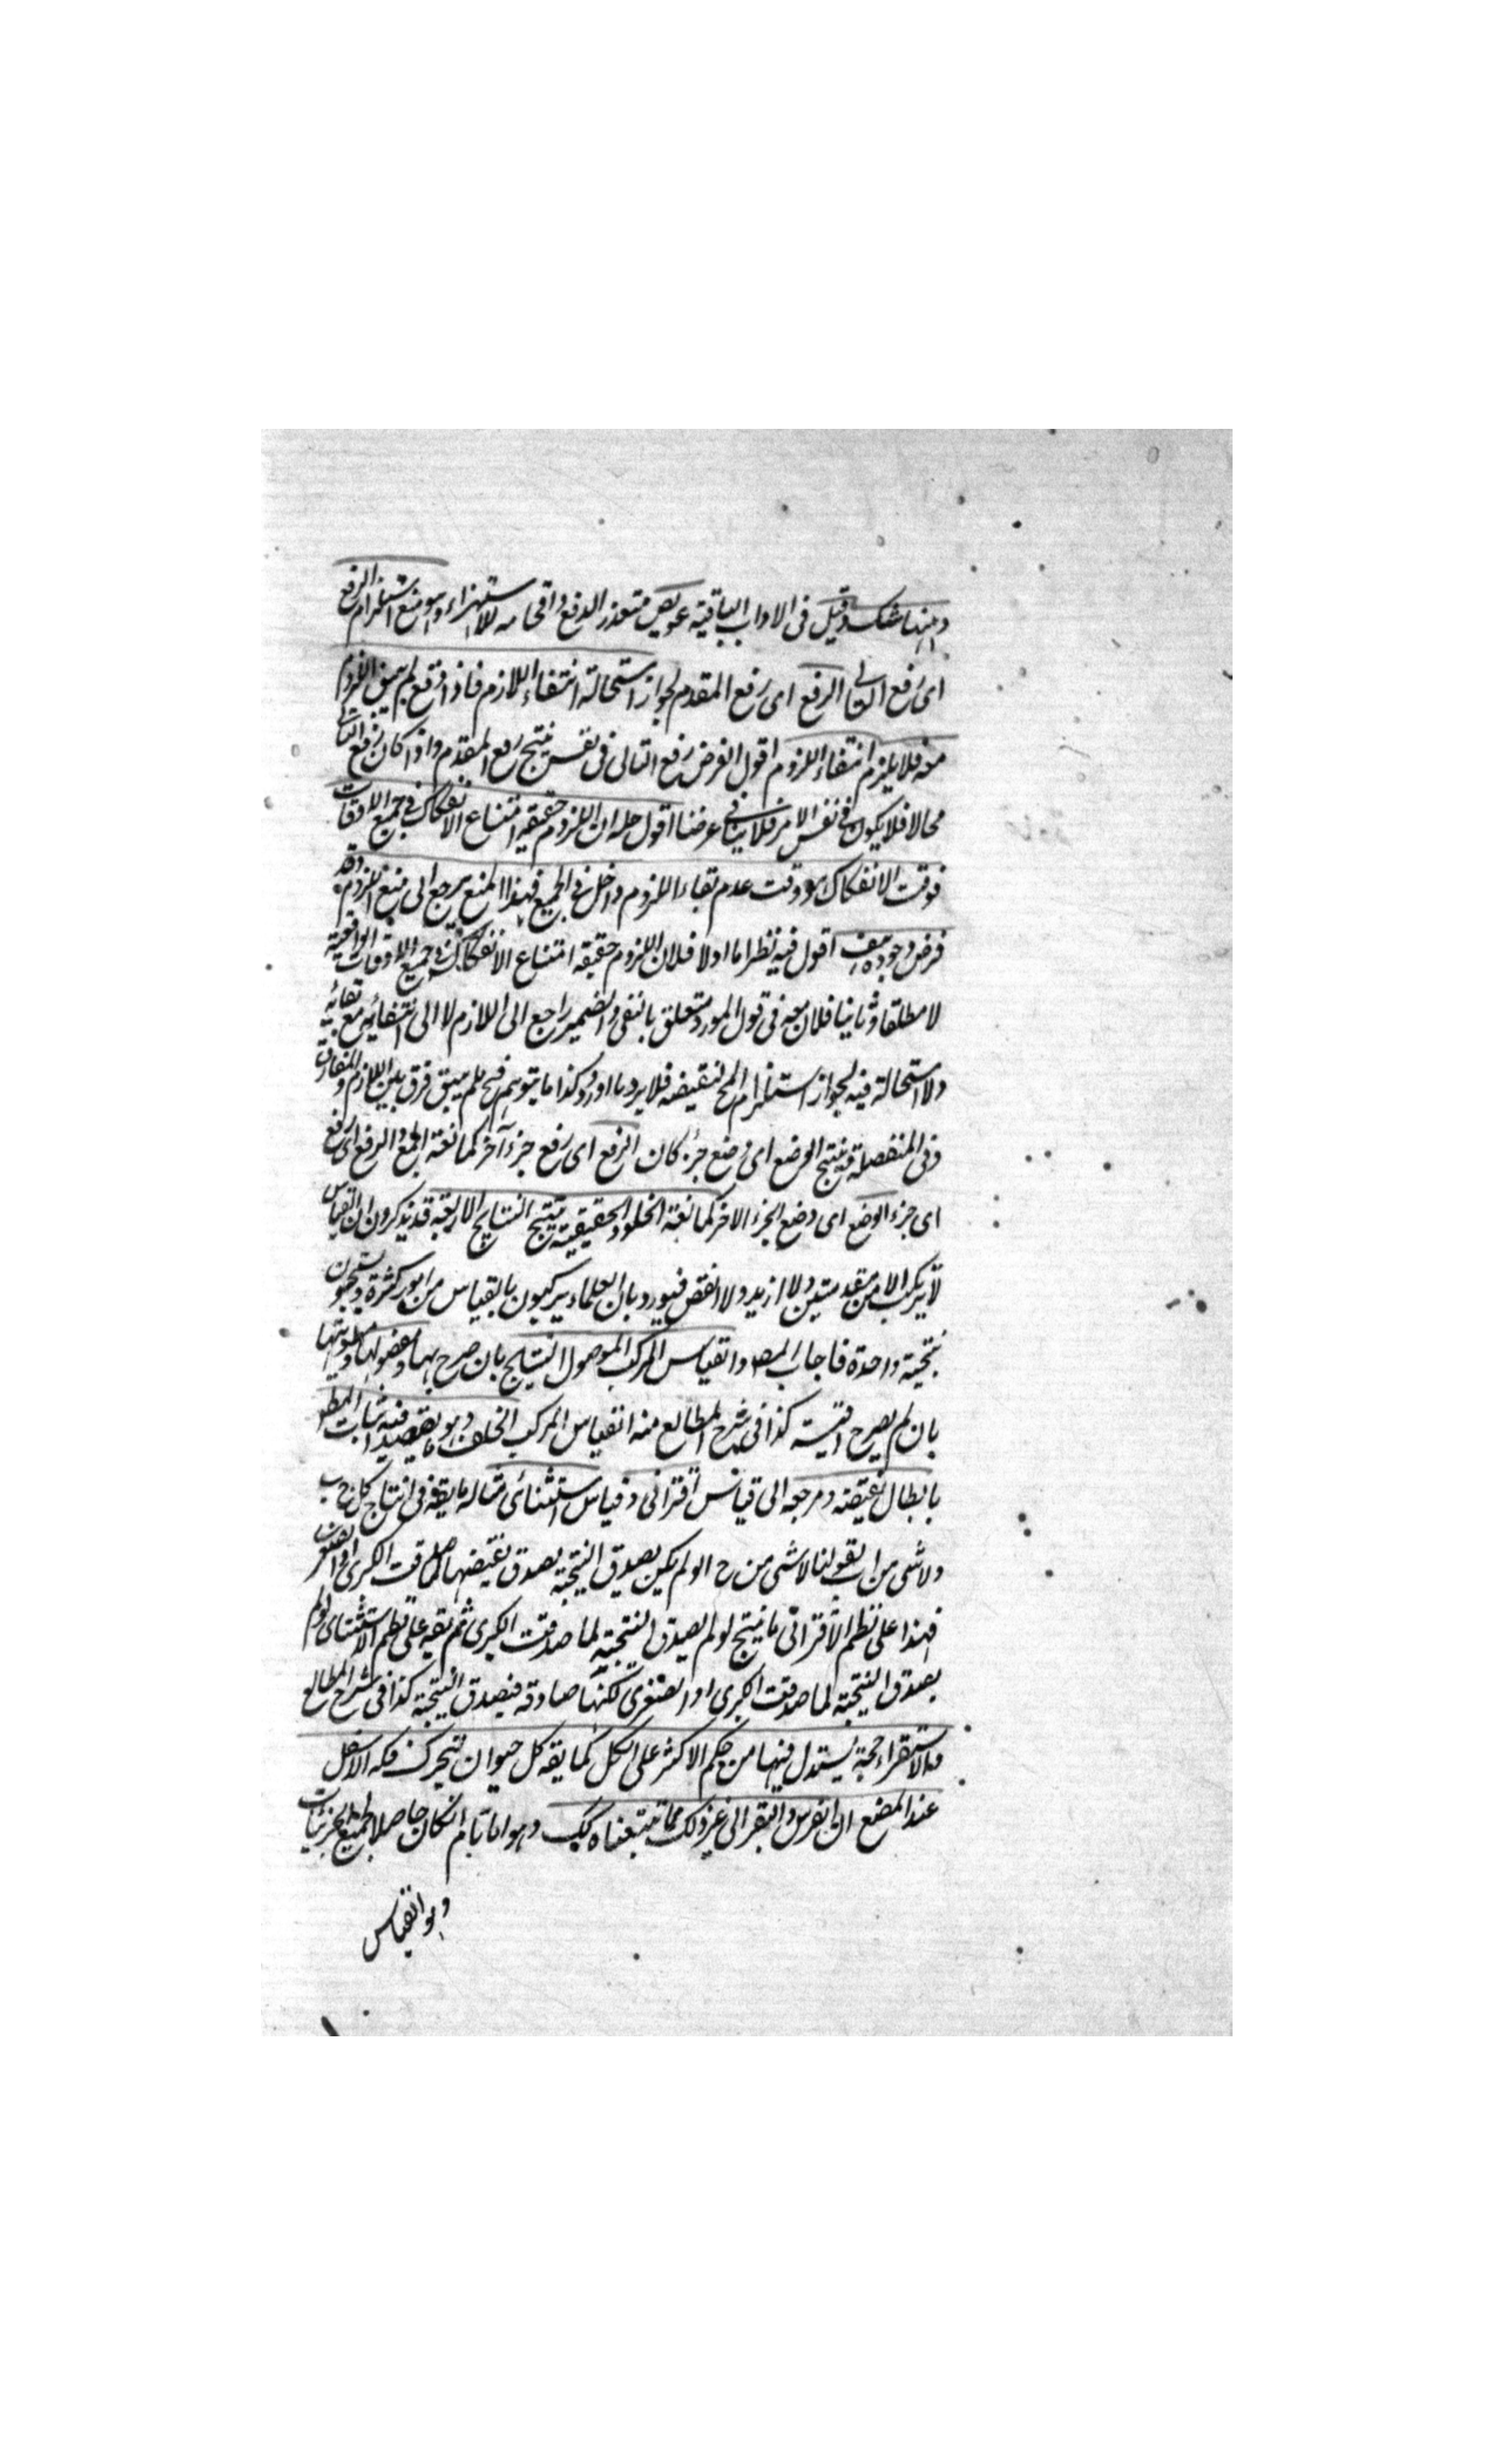 وههنا شك وقيل في الاداب الباقية عويص متعذر الدفع واقحامه للاستهزاء وهو منع استلزام الرفع
اى رفع التالى الرفع اى رفع المقدم لجواز استحالة انتفاء اللازم فاذا وقع لم يبق اللزوم
معه فلا يلزم انتفاء اللزوم اقول الغرض رفع التالى فى نفس ينتج رفع المقدم واذا كان رفع التالى
محالا فلا يكون فى نفس الامر فلا ينافى غرضنا اقول حله ان اللزوم حقيقة امتناع الانفكاك فى جميع الاوقات
فوقت الانفكاك وهو وقت عدم بقاء اللزوم داخل فى الجميع فهذا المنع يرجع الى منع اللزوم وقد
فرض وجوده هف اقول فيه نظر اما اولا فلان اللزوم حقيقة امتناع الانفكاك فى جميع الاوقات الواقعية
لا مطلقا وثانيا فلان معه فى قول المورد متعلق بالنفى والضمير راجع الى اللازم لا الى انتفائه مع بقائه
ولا استحالة فيه لجواز استلزام المح لنقيضه فلا يرد ما اورد وكذا ما يتوهم فح لم يبق فرق بين اللازم والمفارق
وفى المنفصلة ينتج الوضع اى وضع جزء كان الرفع اى رفع جزء آخر كمانعة الجمع والرفع اى رفع
اى جزء الوضع اى وضع الجزء الاخر كمانعة الخلو والحقيقية ينتج النتايج الاربعة قد يذكرون ان القياس
لا يتركب الا من مقدمتين ولا ازيد ولا انقص فيورد بان العلماء يركبون بالقياس من امور كثرة ويستنتجون
نتيجة واحدة فاجاب المصـ والقياس المركب الموصول النتايج بان صرح بها ومفصولها ومطويتها
بان لم يصرح اقيسة كذا فى شرح المطالع منه القياس المركب الخلف وهو ما يقصد فيه اثبات المطـ
بابطال نقيضه ومرجعه الى قياس اقترانى وقياس استثنائى مثاله ما يقع فى انتاج كل ج ب
ولا شى من ا ب لقولنا لا شى من ج ا لو لم يكن يصدق النتيجة يصدق نقيضها لما صدقت الكبرى او الصغرى
فهذا على نظم الاقترانى ما ينتج لو لم يصدق النتيجة لما صدقت الكبرى ثم يقع على نظم الاستثنائى لو لم
يصدق النتيجة لما صدقت الكبرى او الصغرى لكنها صادقة فيصدق النتيجة كذا فى شرح المطالع
والاستقراء حجة يستدل فيها من حكم الاكثر على الكل كما يقه كل حيوان يتحرك فكه الاسفل
عند المضغ لان الفرس والبقر الى غير ذلك مما تتبعناه كك وهو اما تام انكان حاصلا لجميع الجزئيات
وهو القياس